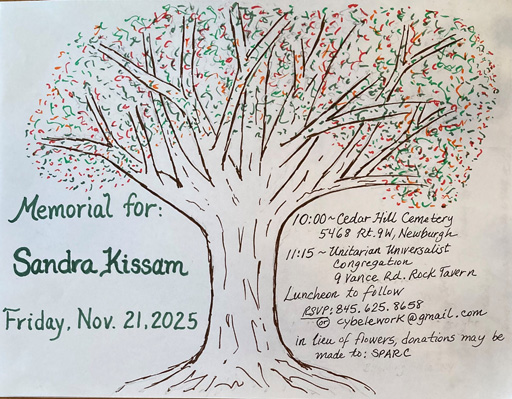 Memorial for:
Sandra Kissam
Friday, Nov. 21, 2025
10:00~Cedar Hill Cemetery
5468 Rt. 9W, Newburgh
11:15~Unitarian Universalist
Congregation
9 Vance Rd. Rock Tavern
Luncheon to follow
RSVP: 845.625.8658
or cybelework@gmail.com
in lieu of flowers, donations may be
made to: SPARC